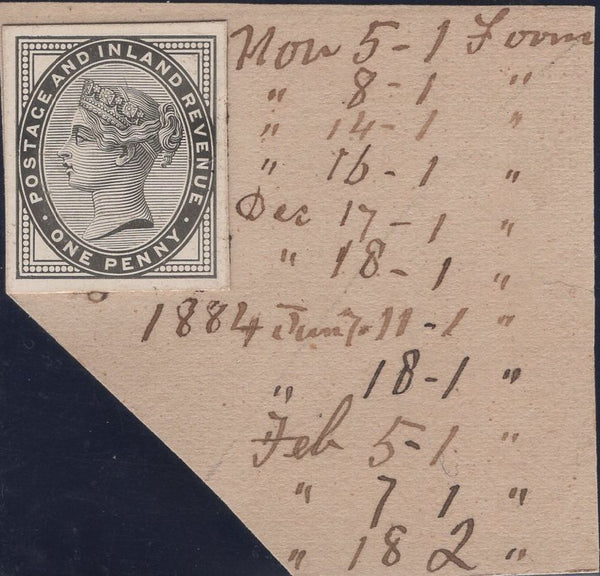 POSTAGE AND INLAND REVENUE · ONE PENNY ·
Nov 5-1 Form
" 8-1 "
" 14-1 "
" 16-1 "
Dec 17-1 "
" 18-1 "
1884 11-1 "
" 18-1 "
Feb 5-1 "
" 7 1 "
" 18 2 "